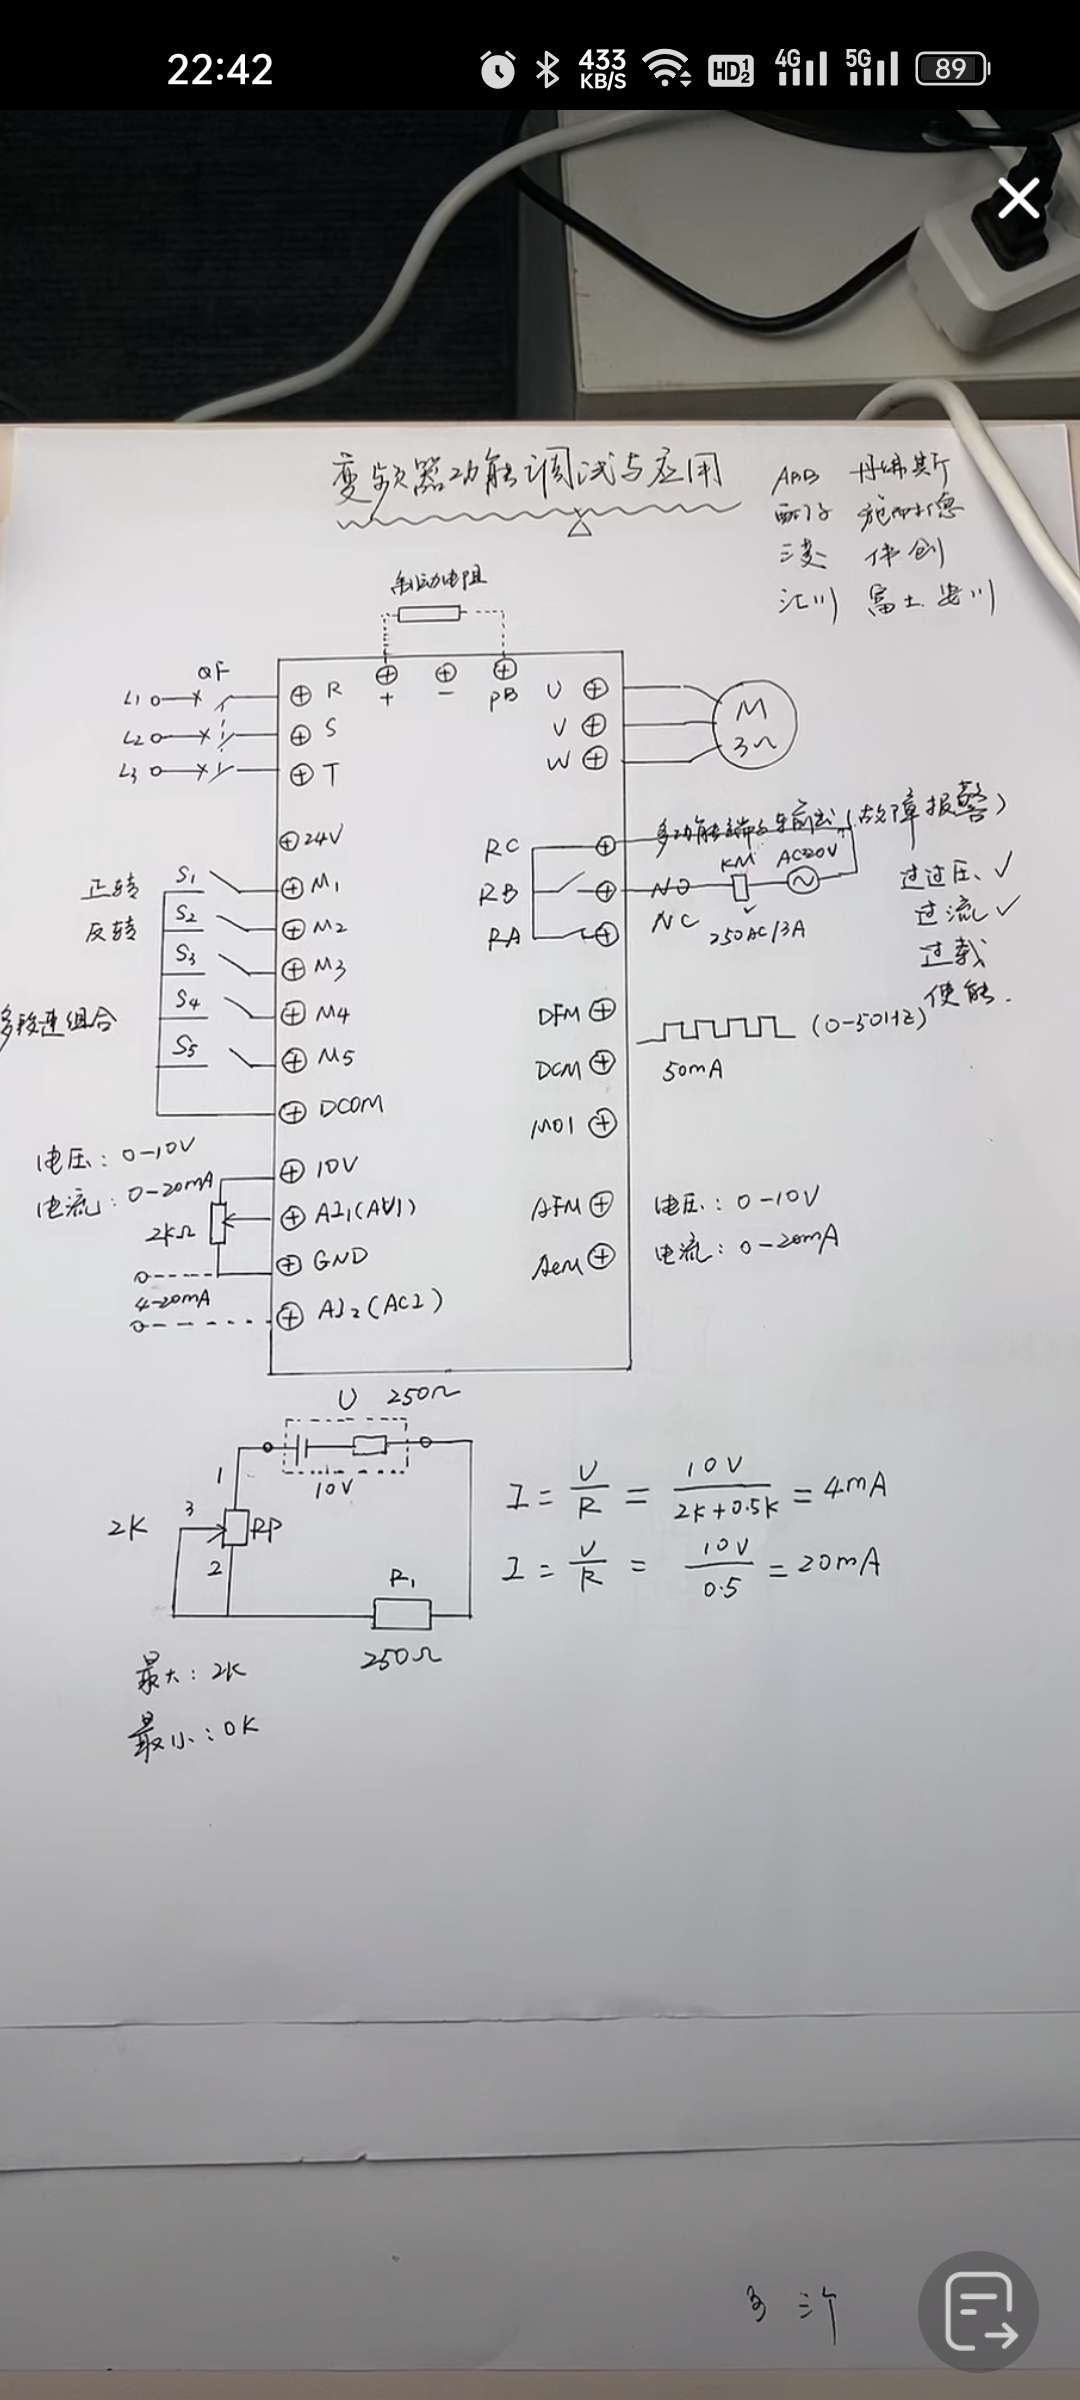 22:42
433 KB/S
HD 1 2
4G
5G
89
变频器功能调试与应用
ABB 丹佛斯
西门子 施耐德
三菱 伟创
汇川 富士 安川
制动电阻
QF
L1
L2
L3
R
S
T
+
-
PB
U
V
W
M
3~
24V
正转
反转
多段速组合
S1
S2
S3
S4
S5
M1
M2
M3
M4
M5
DCOM
电压: 0-10V
电流: 0-20mA
2kΩ
4-20mA
10V
AI1(AV1)
GND
AI2(AC2)
RC
RB
RA
多功能端子输出(故障报警)
KM
NO
NC
250AC/3A
过过压、✓
过流✓
过载
使能.
DFM
DCM
MO1
(0-50HZ)
50mA
AFM
ACM
电压: 0-10V
电流: 0-20mA
U 250Ω
10V
1
3
2
2K
RP
R1
250Ω
最大: 2K
最小: 0K
I = U/R = 10V/(2K+0.5K) = 4mA
I = U/R = 10V/0.5 = 20mA